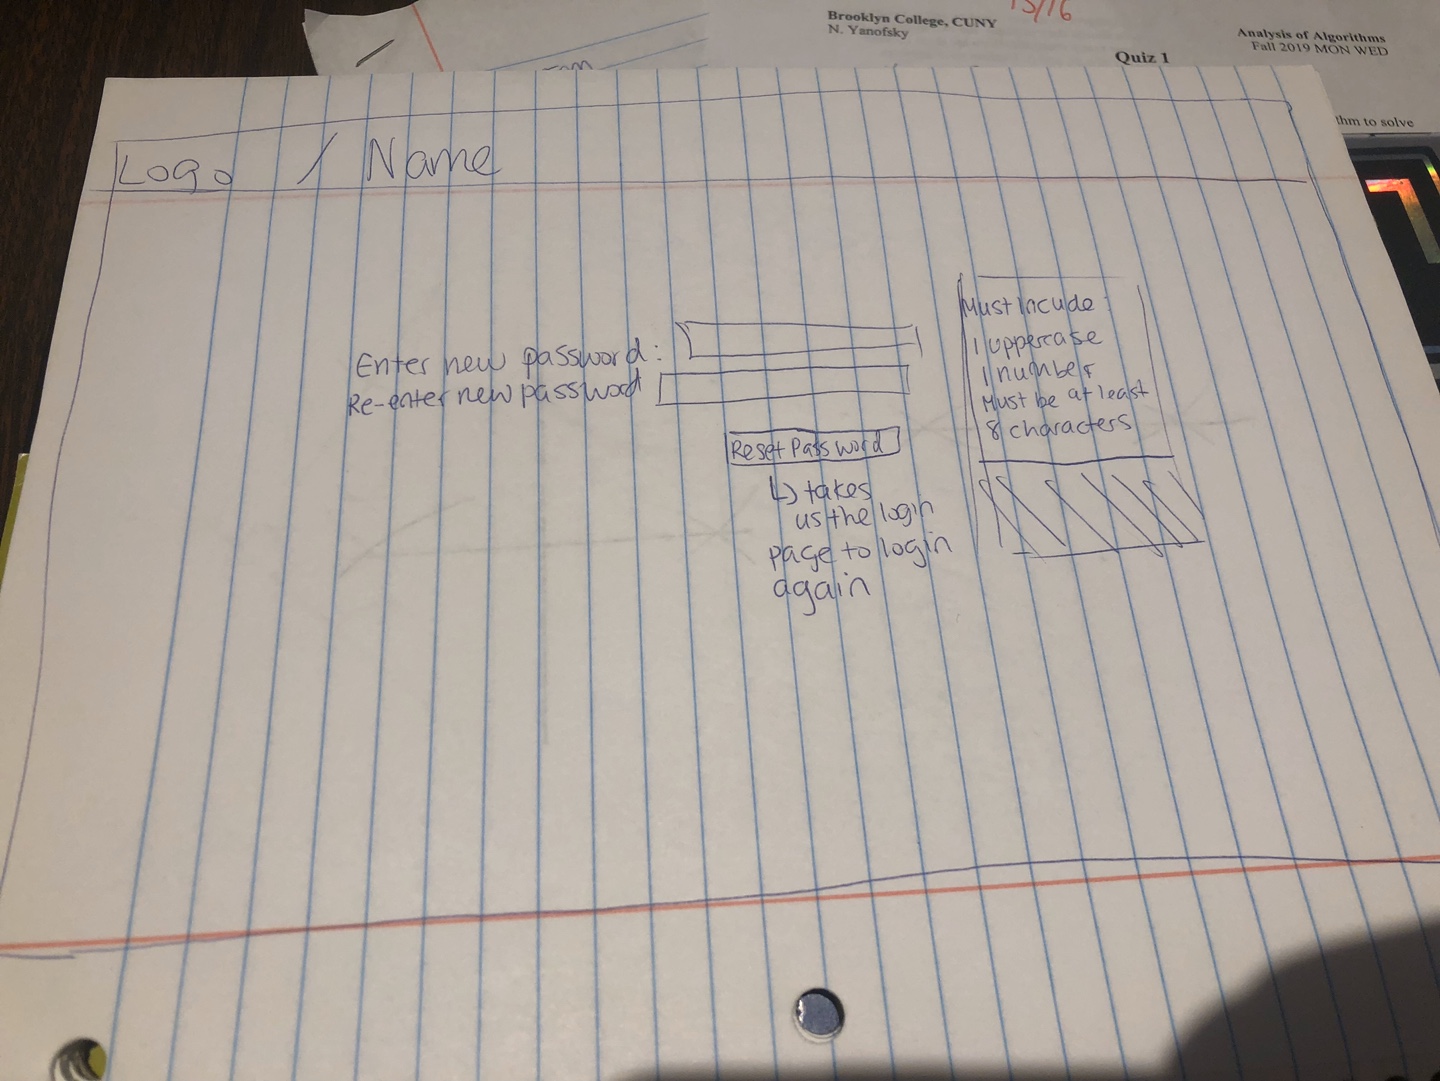 15/16
Brooklyn College, CUNY
N. Yanofsky
Analysis of Algorithms
Fall 2019 MON WED
Quiz 1
thm to solve
Logo / Name
Enter new password:
Re-enter new password
Reset Password
↳ takes
us the login
page to login
again
Must Incude :
1 uppercase
1 number
Must be at least
8 characters